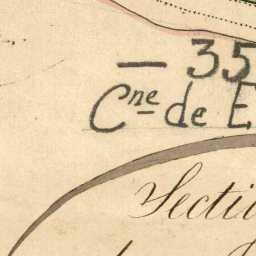 — 35
Cne de E
Secti